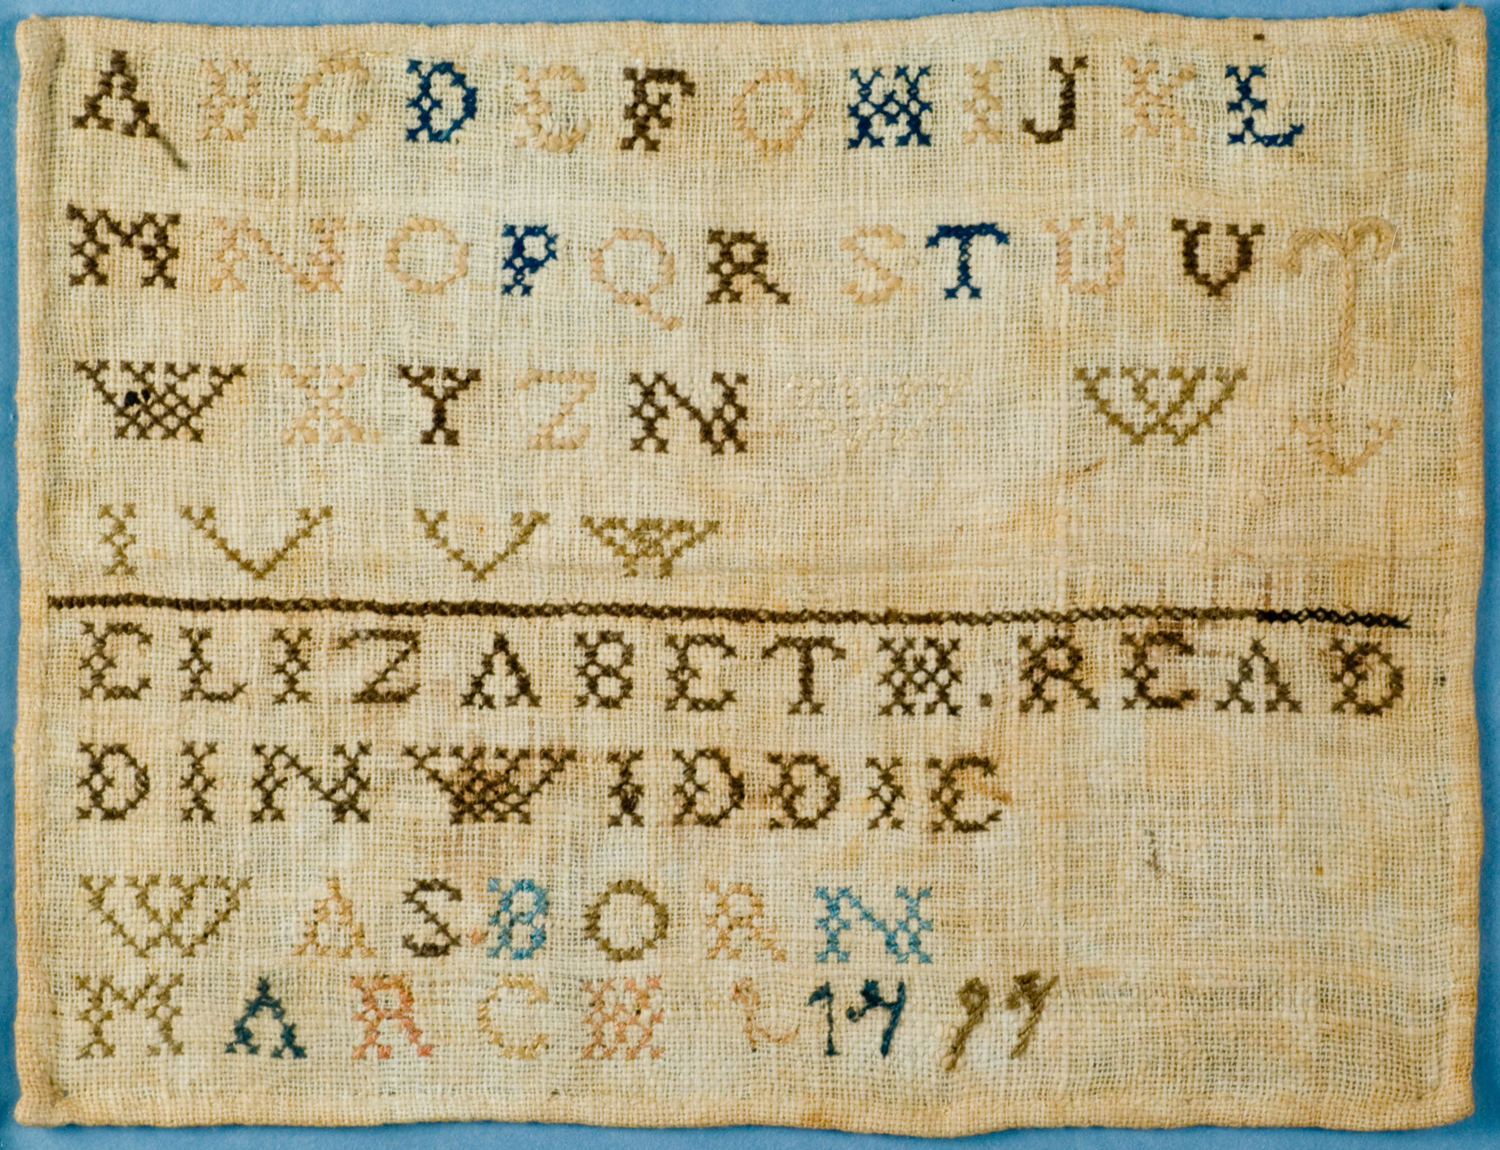 A B C D E F G H I J K L
M N O P Q R S T U V
W X Y Z N W W
I V V W
ELIZABETH. READ
DINWIDDIE
WAS BORN
MARCH